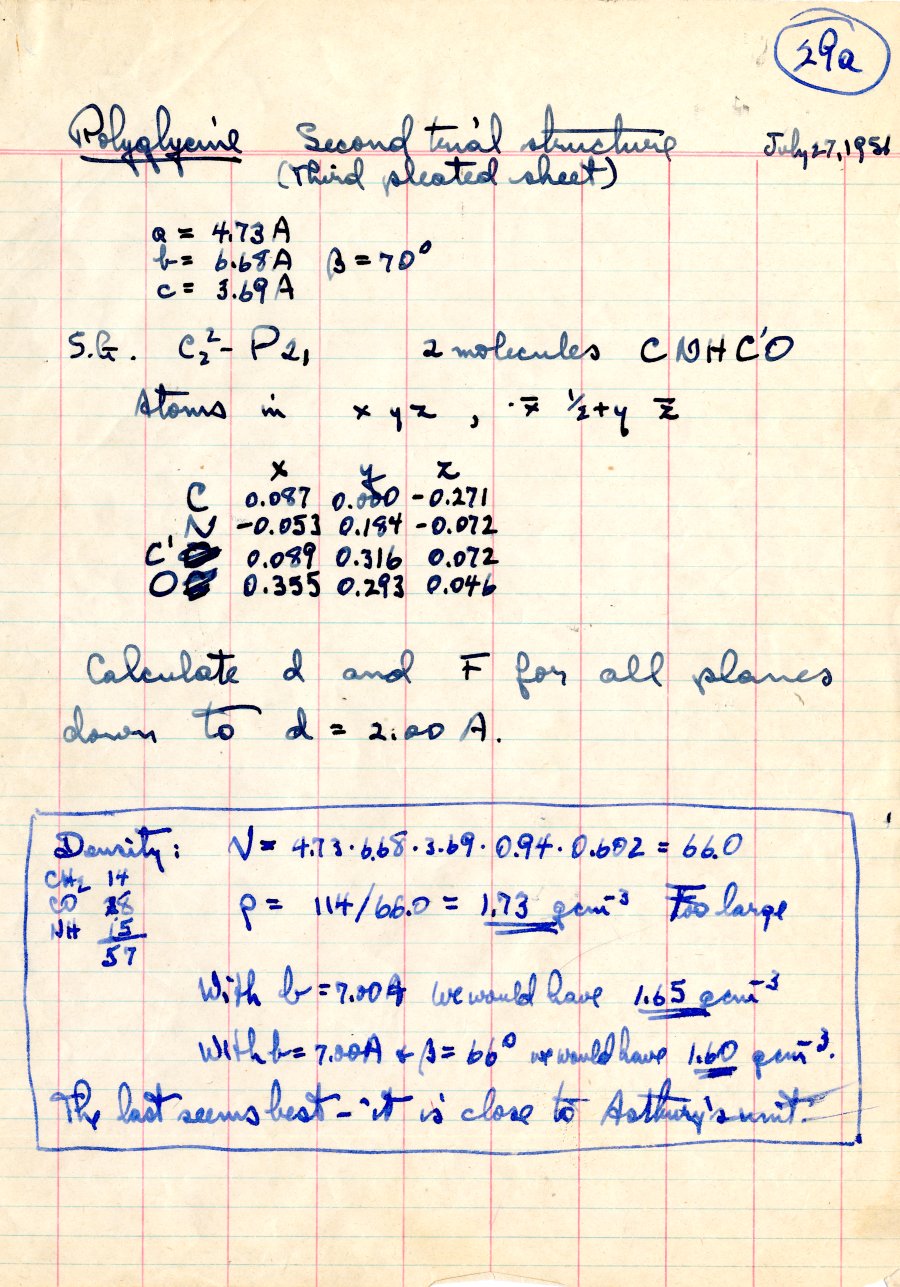 29a
Polyglycine Second trial structure July 27, 1951
(Third pleated sheet)
a = 4.73 A
b = 6.68 A β = 70°
c = 3.69 A
S.G. C₂² - P2₁ 2 molecules CNHC'O
Atoms in x y z , x̄ ½+y z̄
x y z
C 0.087 0.000 -0.271
N -0.053 0.184 -0.072
C' 0.089 0.316 0.072
O 0.355 0.293 0.046
Calculate d and F for all planes
down to d = 2.00 A.
Density: V = 4.73 · 6.68 · 3.69 · 0.94 · 0.602 = 66.0
CH₂ 14
CO 28
NH 15
57
ρ = 114/66.0 = 1.73 g cm⁻³ Too large
With b = 7.00A we would have 1.65 g cm⁻³
With b = 7.00A & β = 66° we would have 1.60 g cm⁻³.
The last seems best - it is close to Astbury's unit.